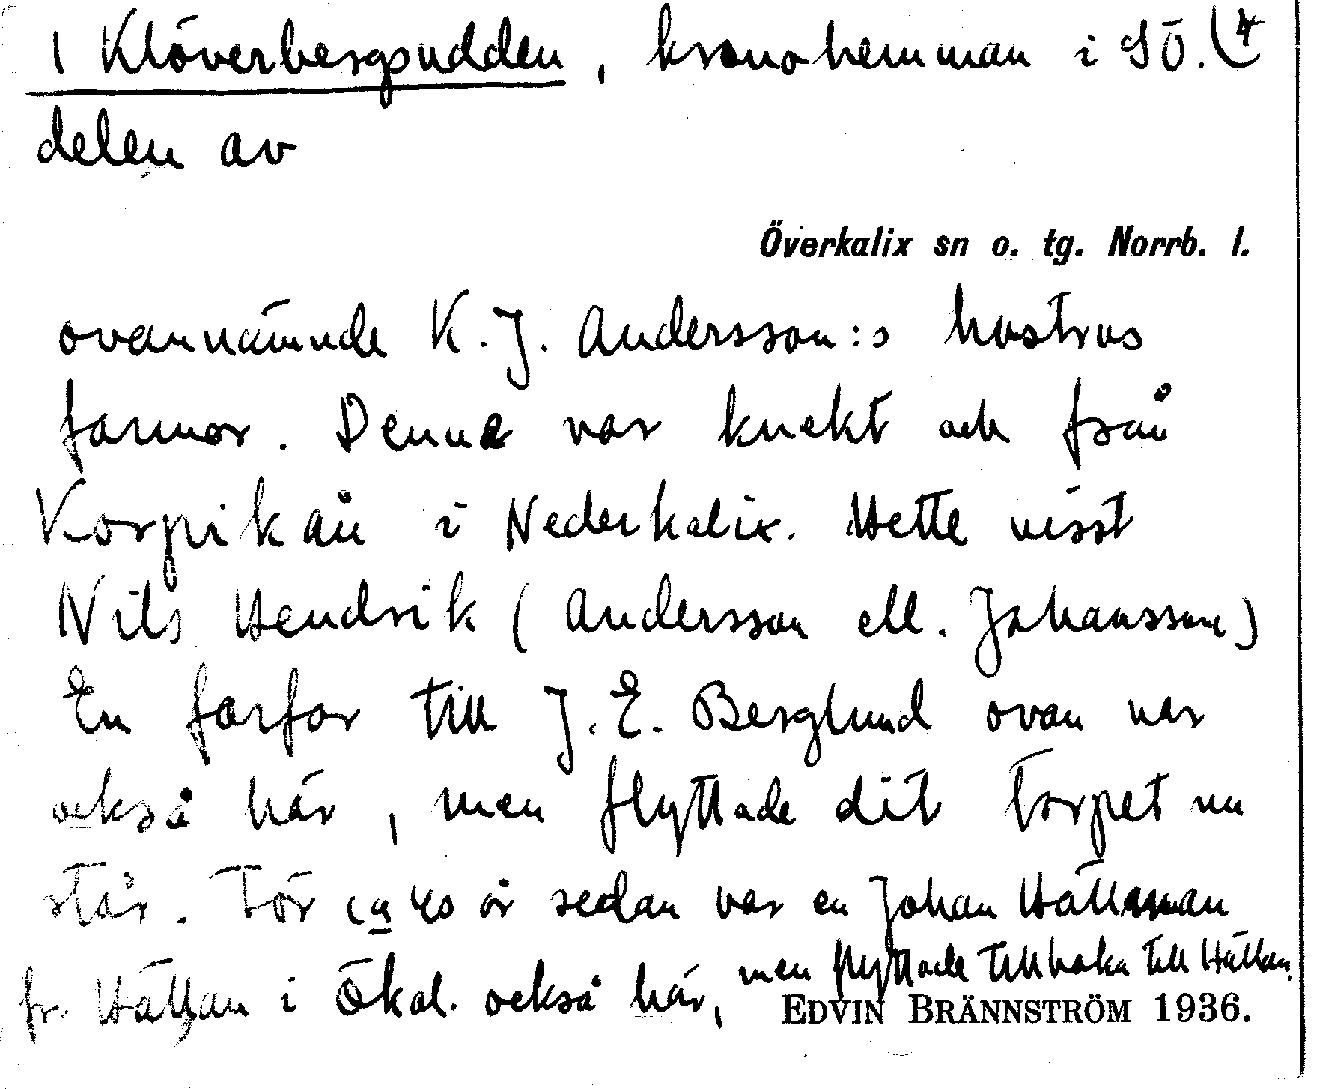 1 Klöverbergsudden, kronohemman i SÖ. (4
delen av
Överkalix sn o. tg. Norrb. l.
ovannämnde K. J. Andersson:s hustrus
farmor. Denne var knekt och från
Korpikån i Nederkalix. Hette visst
Nils Hendrik (Andersson ell. Johansson)
En farfar till J. E. Berglund ovan var
också här, men flyttade dit torpet nu
står. För ca 40 år sedan var en Johan Hällman
fr. Hällan i Ökal. också här, men flyttade tillbaka till Hällan.
EDVIN BRÄNNSTRÖM 1936.